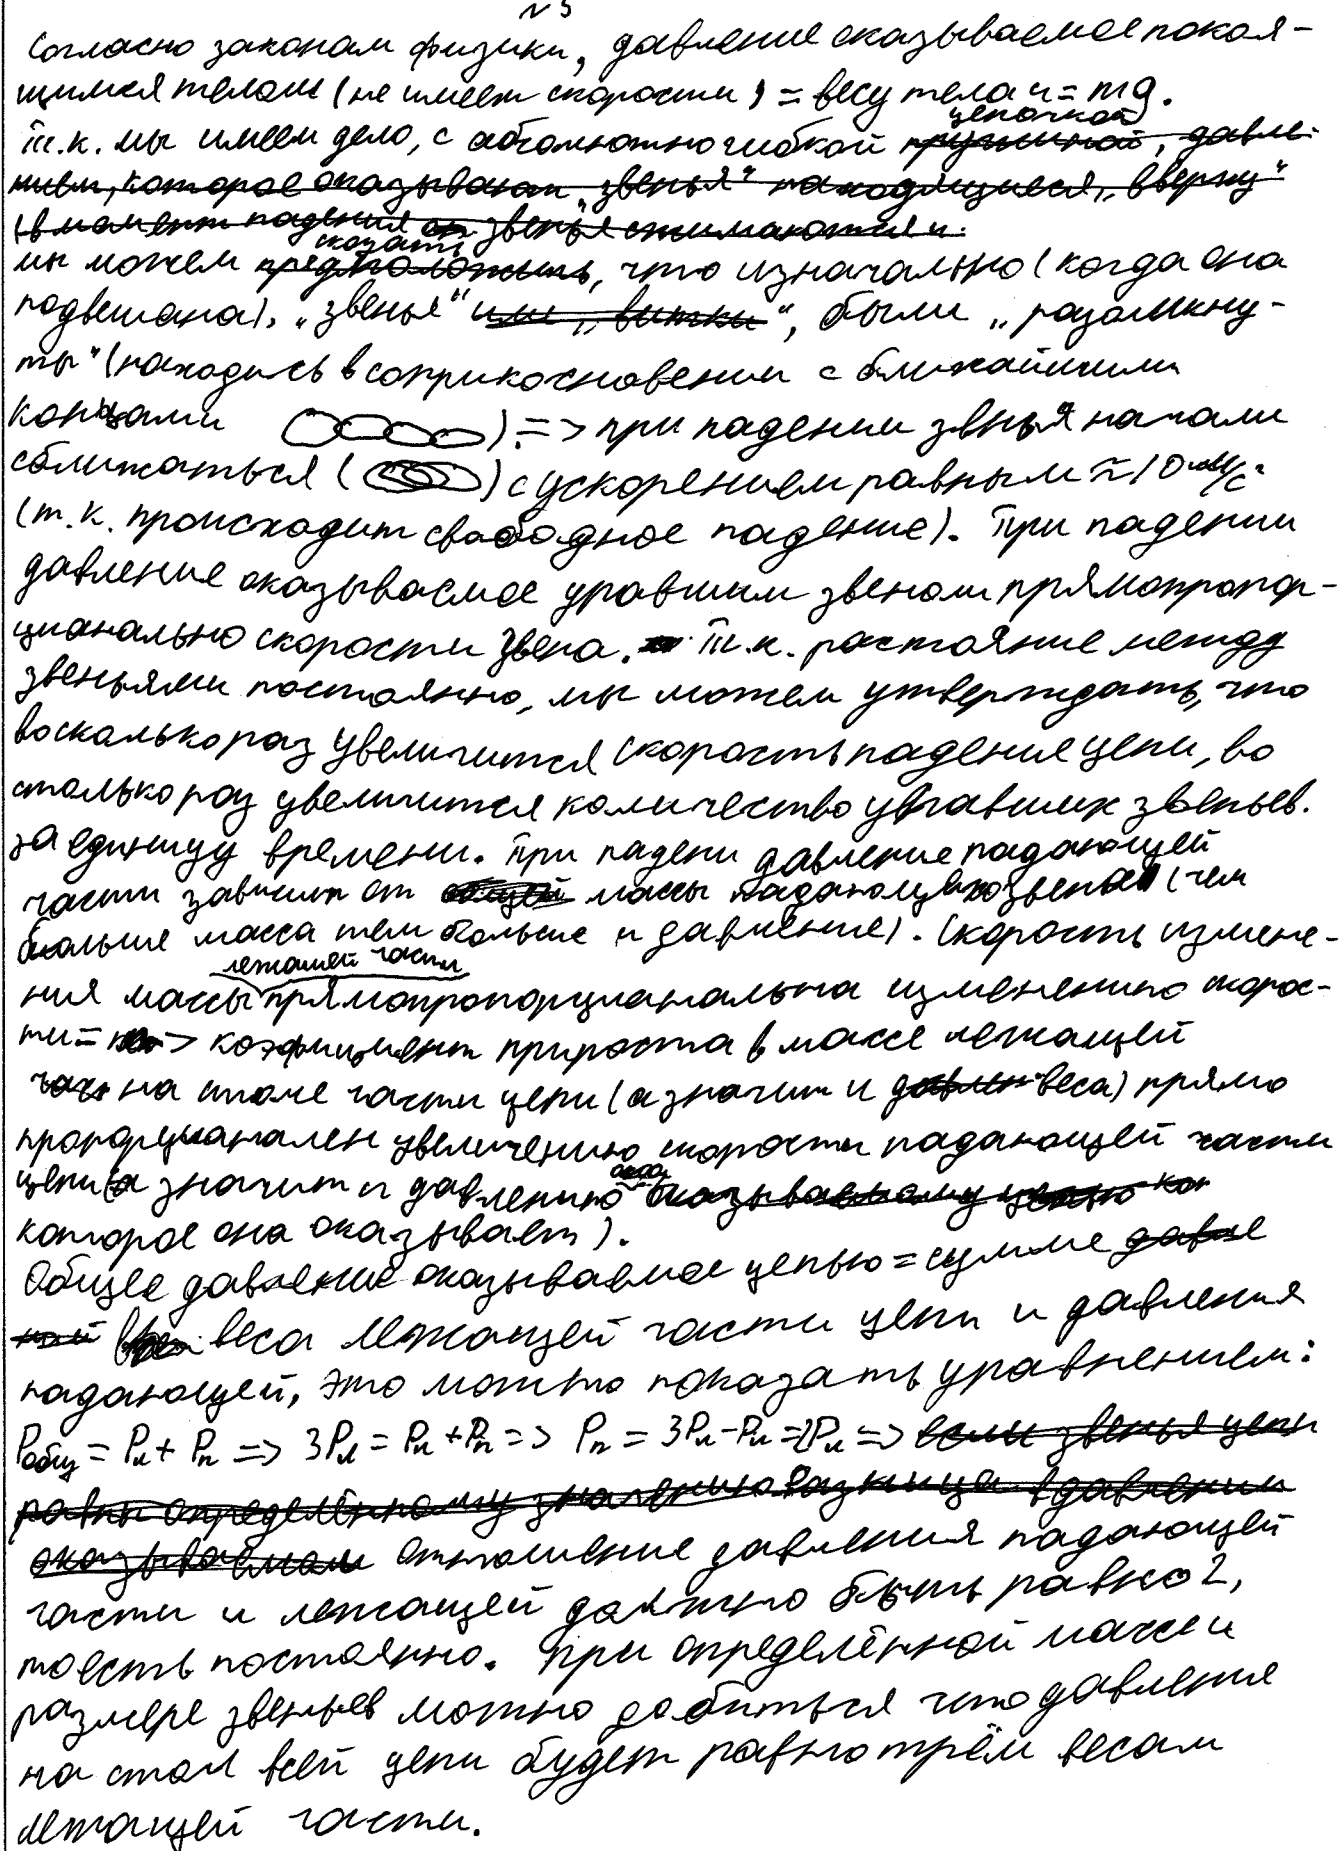 №5
Согласно законам физики, давление оказываемое покоя-
щимся телом (не имеет скорости) = весу тела и = mg.
Т.к. мы имеем дело, с абсолютно гибкой цепочкой
пружиной, давле-
нием, которое оказывают "звенья" находящиеся, "вверху"
(в момент падения звенья сжимаются и.
сказать
мы можем предположить, что изначально (когда она
подвешана), "звенья" или "витки", были "разомкну-
ты" (находись в соприкосновении с ближайшими
концами ) => при падении звнья начали
сближаться ( ) с ускорением равным ≈ 10 м/с²
(т.к. происходит свободное падение). При падении
давление оказываемое упавшим звеном прямопропор-
ционально скорости звена. Т.к. растояние между
звеньями постоянно, мы можем утверждать, что
восколько раз увеличится скорость падения цепи, во
столько раз увеличится количество упавших звеньев.
за единицу времени. При падени давление падающей
части зависит от общей массы падающего звена (чем
больше масса тем больше и давление). Скорость измене-
лежащей части
ния массы прямопропорциональна изменению скорос-
ти => коэффициент прироста в массе лежащей
на столе части цепи (а значит и давлен веса) прямо
пропорцианален увеличению скорости падающей части
цепи (а значит и давлению оказываемому цепью
которое она оказывает).
Общее давление оказываемое цепью = сумме давле
ний веса лежащей части цепи и давления
падающей, это можно показать уравнением:
Pобщ = Pл + Pп => 3Pл = Pл + Pп => Pп = 3Pл - Pл = 2Pл => если звенья цепи
равны определённому значению разница в давлении
оказываемом отношение давления падающей
части и лежащей должно быть равно 2,
тоесть постоянно. При определённой массе и
размере звеньев можно добиться что давление
на стол всей цепи будет равно трём весам
лежащей части.